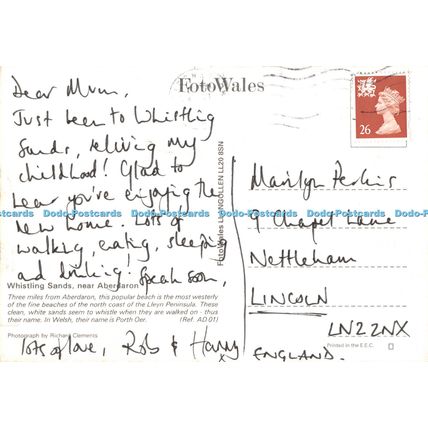 FotoWales
Dear Mum,
Just been to Whistling
Sands, reliving my
childhood! Glad to
hear you're enjoying the
new home. Lots of
walking, eating, sleeping
and drinking! Speak soon,
Whistling Sands, near Aberdaron
Three miles from Aberdaron, this popular beach is the most westerly
of the fine beaches of the north coast of the Lleyn Peninsula. These
clean, white sands seem to whistle when they are walked on - thus
their name. In Welsh, their name is Porth Oer. (Ref. AD.01)
Photograph by Richard Clements
lots of love, Rob & Harry
x
FotoWales LLANGOLLEN LL20 8SN
26
Marilyn Perkins
9 Chapel Lane
Nettleham
LINCOLN
LN2 2NX
ENGLAND.
Printed in the E.E.C.
Dodo-Postcards Dodo-Postcards Dodo-Postcards Dodo-Postcards Dodo-Postcards